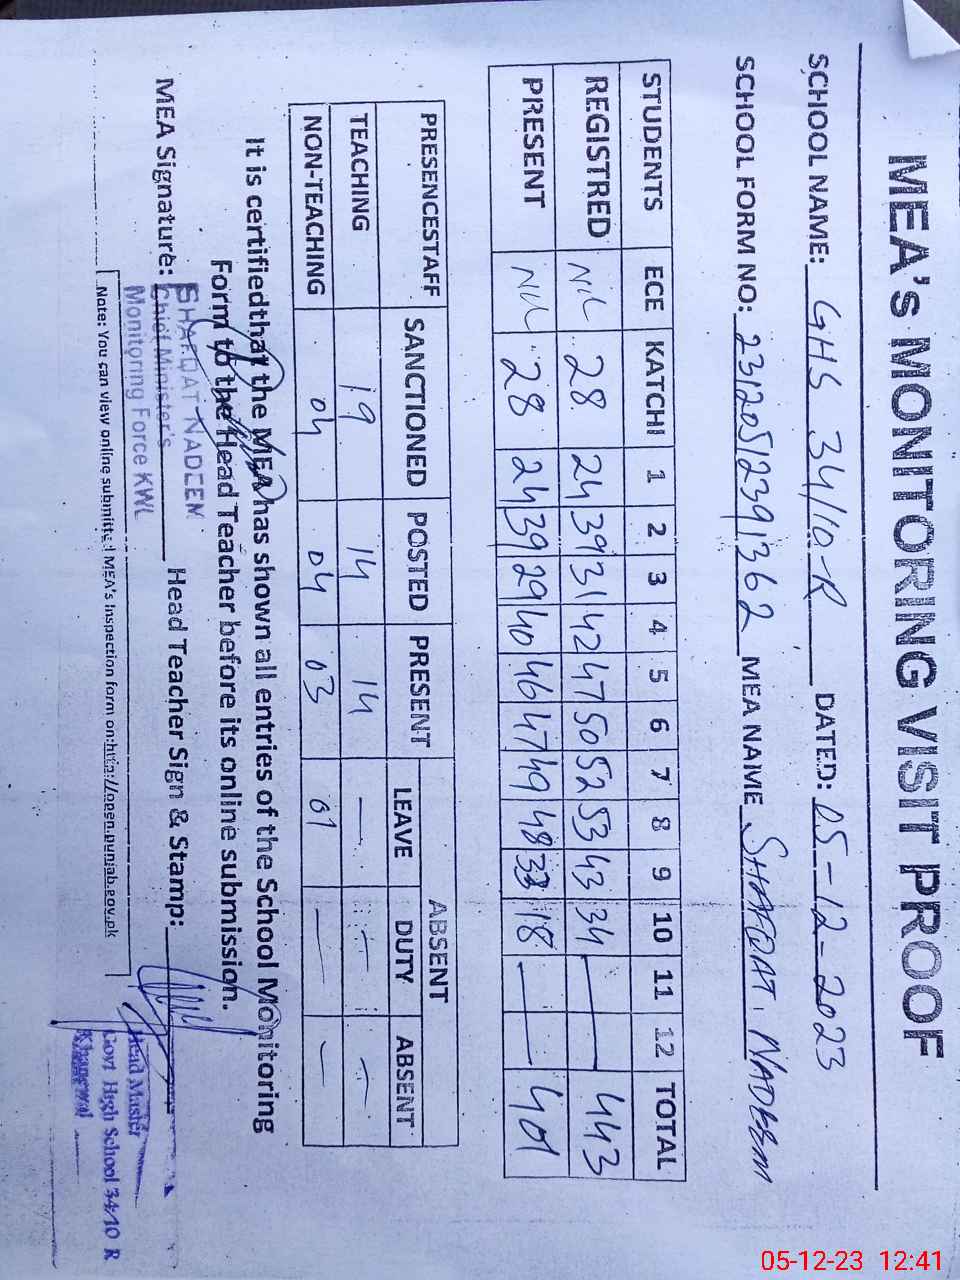 MEA's MONITORING VISIT PROOF
SCHOOL NAME: GHS 34/10-R DATED: 05-12-2023
SCHOOL FORM NO: 23120512391362 MEA NAME SHAFQAT NADEEM
STUDENTS ECE KATCHI 1 2 3 4 5 6 7 8 9 10 11 12 TOTAL
REGISTRED NIL 28 24 39 31 42 47 50 52 53 43 34 — 443
PRESENT NIL 28 24 39 29 40 46 47 49 48 33 18 — 401
PRESENCESTAFF SANCTIONED POSTED PRESENT ABSENT
LEAVE DUTY ABSENT
TEACHING 19 14 14 — — —
NON-TEACHING 04 04 03 01 — —
It is certifiedthat the MEA has shown all entries of the School Monitoring
Form to the Head Teacher before its online submission.
MEA Signature: Head Teacher Sign & Stamp:
SHAFQAT NADEEM
Chief Minister's
Monitoring Force KWL
Head Master
Govt High School 34/10 R
Khanewal
Note: You can view online submitted MEA's Inspection form on:http://open.punjab.gov.pk
05-12-23 12:41